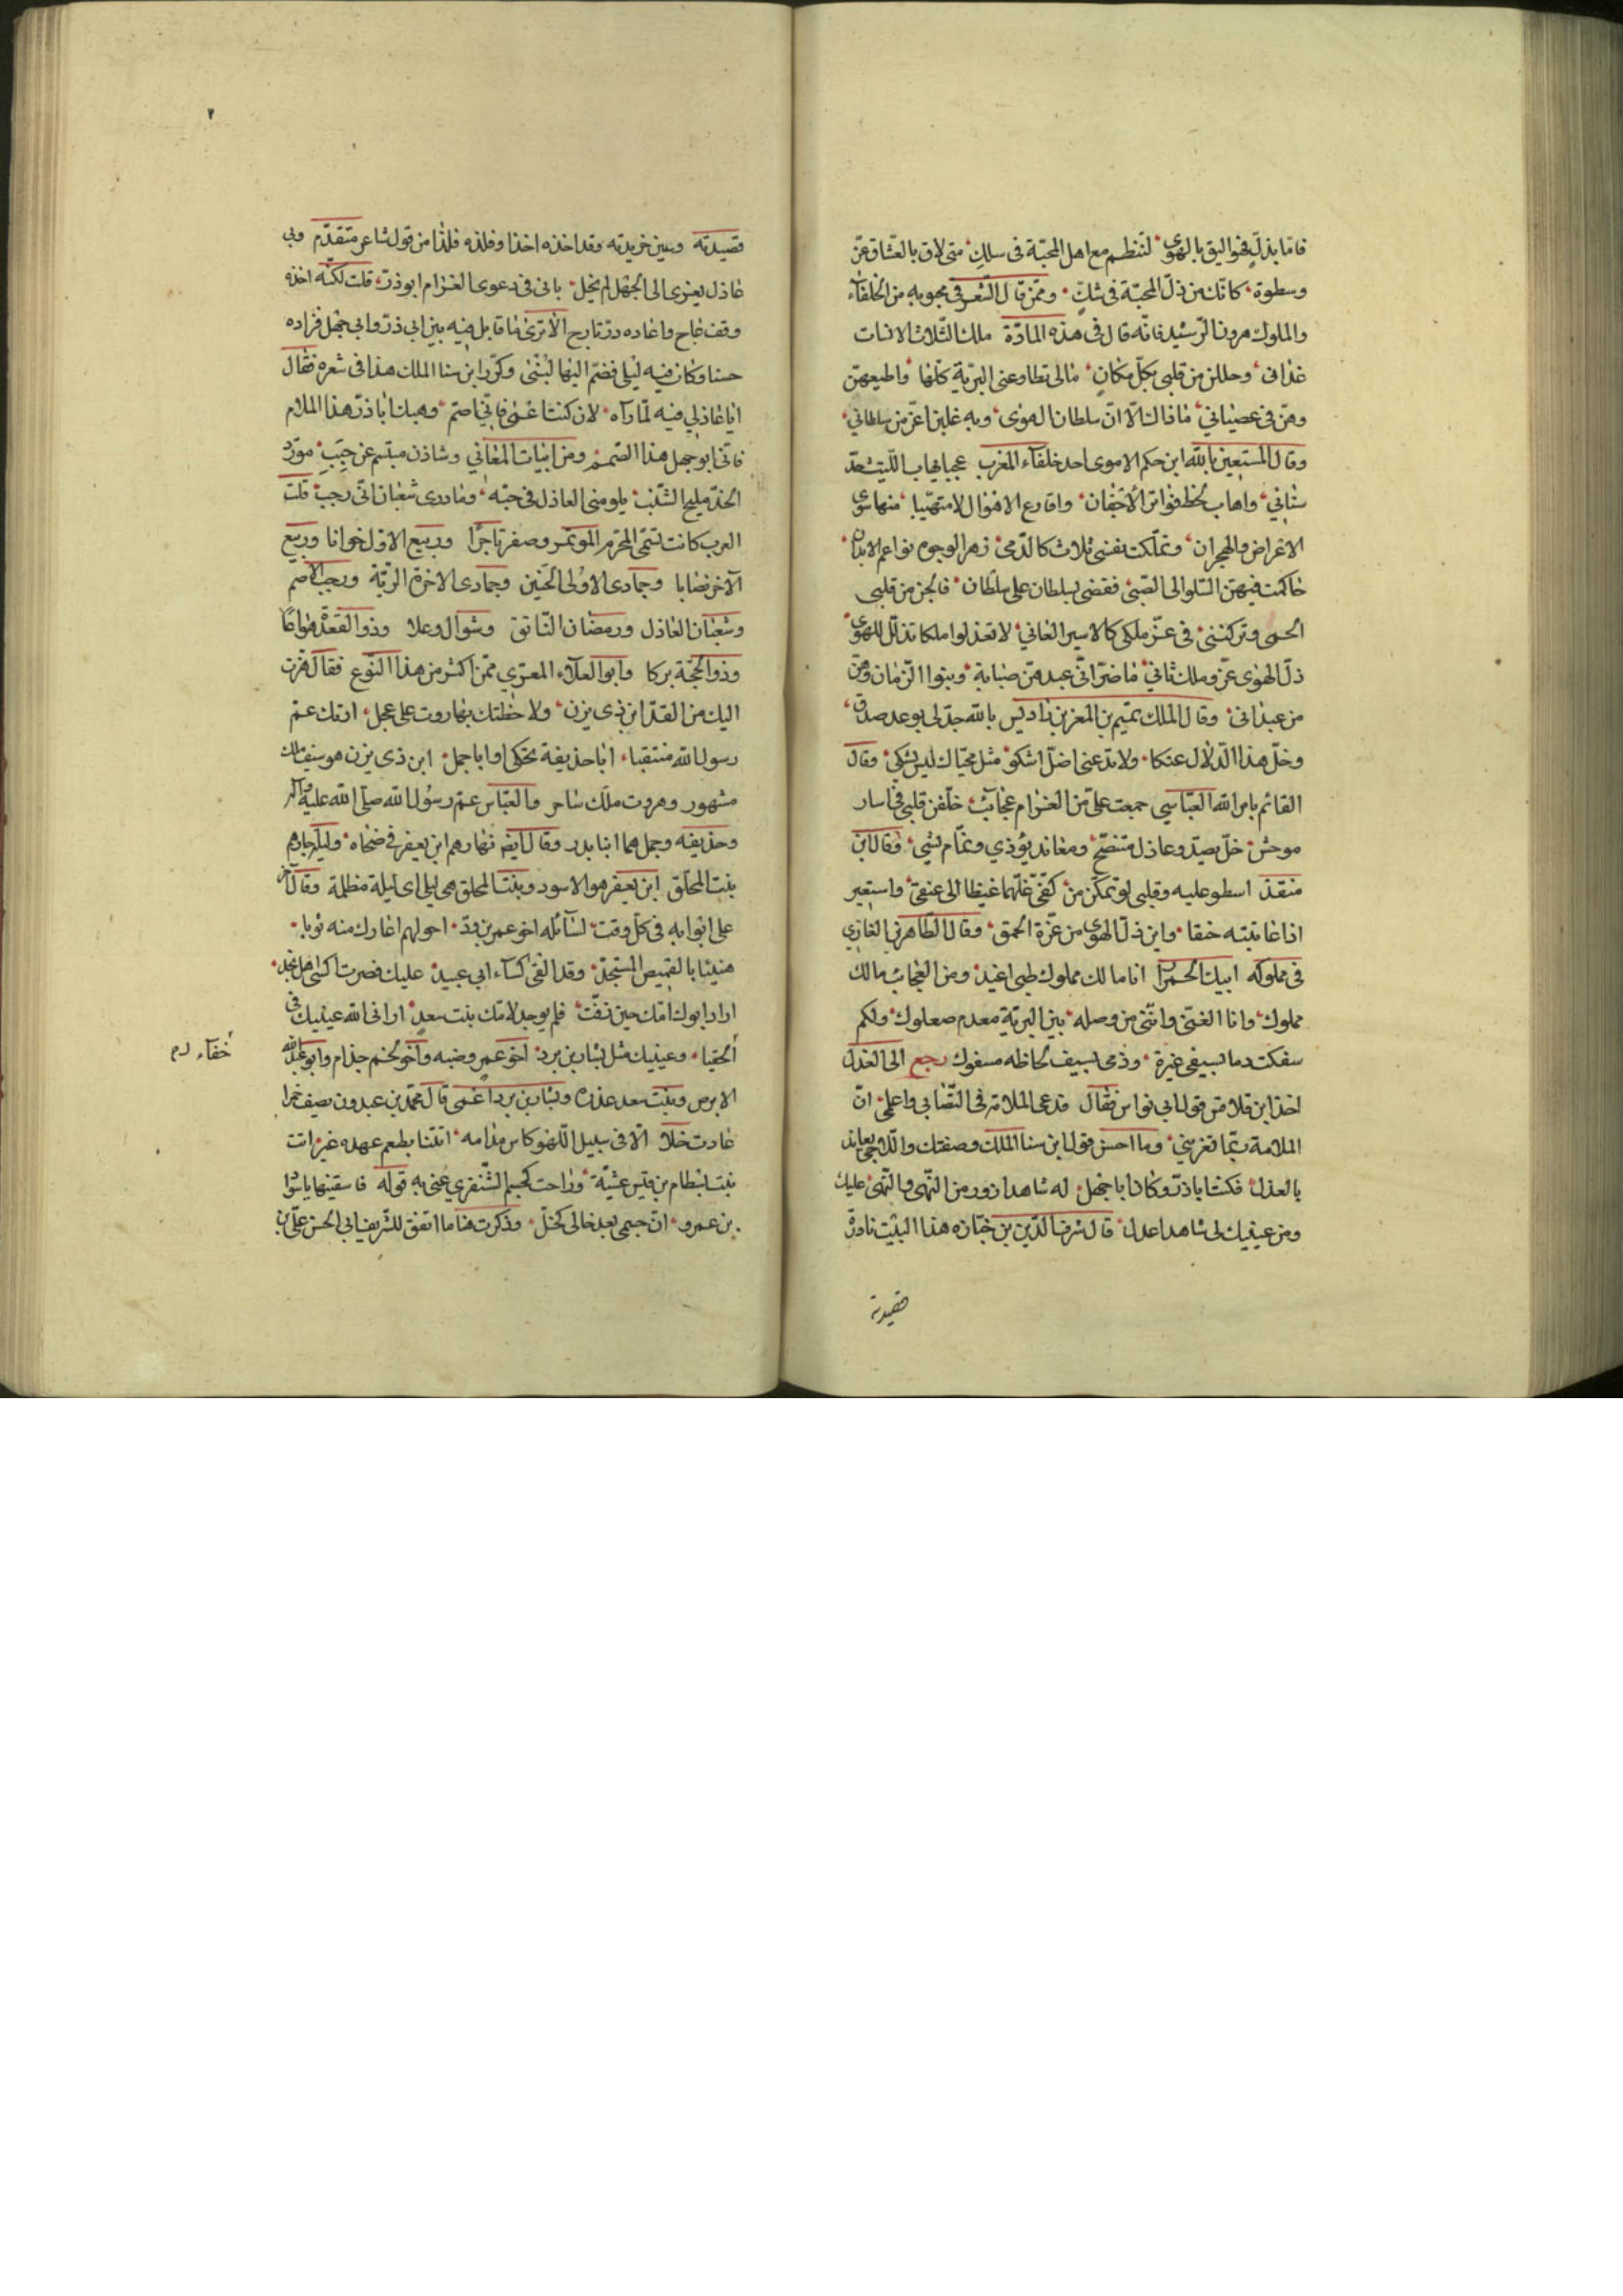 فامّا بذلّ فهو اليق بالهوى لتنظم مع اهل المحبّة فى سلك متى لاق بالعشّاق عزّ
وسطوة كانّك من ذلّ المحبّة فى شكّ وممّن قال الشعر فى محبوبه من الخلفآء
والملوك هرون الرّشيد فانّه قال فى هذه المادّة ملك الثّلاث الانسات
عنانى وحللن من قلبى بكلّ مكان مالى تطاوعنى البريّة كلّها واطيعهنّ
وهنّ فى عصيانى ما ذاك الّا انّ سلطان الهوى وبه غلبن اعزّ من سلطانى
وقال المستعين بالله ابن حكم الاموى احد خلفآء المغرب عجبا يهاب اللّيث حدّ
سنانى واهاب لحظ فواتر الأجفان واقارع الاهوال لا متهيّبا منها سوى
الاعراض والهجران وتملّكت نفسى ثلاث كالدّمى زهر الوجوه نواعم الابدان
حاكمت فيهنّ السّلو الى الصّبى فقضى بسلطان على سلطان فابحن من قلبى
الحمى وتركننى فى عزّ ملكى كالاسير العانى لا تعذلوا ملكا تذلّل للهوى
ذلّ الهوى عزّ وملك ثانى ما ضرّ انّى عبدهنّ صبابة وبنوا الزّمان وهنّ
من عبدانى وقال الملك تميم بن المعز بن باديس بالله جد لى بوعد صدق
وخلّ هذا الدّلال عنكا ولا تدعنى اضلّ اشكو مثل محيّاك ليس يشكى وقال
القائم بامر الله العبّاسى جمعت علىّ من الغرام عجآئب خلّفن قلبى فى اسار
موحش خلّ يصدّ وعاذل متنصّح ومعاند يؤذى ونمّام يشى وقال ابن
منقذ اسطو عليه وقلبى لو تمكّن من كفّىّ غلّهما غيظا الى عنقى واستعير
اذا عاتبته حنقا واين ذلّ الهوى من عزّة الحمق وقال الظّاهر بن الغازى
فى مملوكه ايبك الحمرا انا مالك مملوك ظبى اغيد ومن العجائب مالك
مملوك وانا الغنىّ وانّنى من وصله بين البريّة معدم صعلوك ولكم
سفكت دما بسيفى غيرة ودمى بسيف لحاظه مسفوك رجع الى العذل
اخذ ابن قلاقس قول ابى نواس فقال فدعى الملامة فى التّصابى واعلمى انّ
الملامة ربّما تغرينى وما احسن قول ابن سنا الملك وصفتك واللّاحى يعاند
بالعذل فكنت اباذرّ وكان اباجهل له شاهدا زور من النّهى والنّهى عليك
ومن عينيك لى شاهدا عدل قال شرف الدّين بن جبّاره هذا البيت نادرة
قصيدته
قصيدته وعين خريدته وقد اخذه اخذا وفلذه فلذا من قول شاعر متقدّم وبى
عاذل يعزى الى الجهل لم يخل بانى فى دعوى الغرام ابوذرّ قلت لكنّه اخذه
حسنا وكان فيه ليلى فضمّ اليها لبنى وكرّر ابن سنا الملك هذا فى شعره فقال
ايا عاذلى فيه لمّا رآه لان كنت اعمى فانّى اصمّ وهبك اباذرّ هذا الملام
فانّى ابوجهل هذا الصّمم ومن ابيات المعانى وشاذن مبتسم عن حبب مورّد
الخدّ مليح الشّنب يلومنى العاذل فى حبّه وما درى شعبان انّى رجب قلت
العرب كانت تسمّى المحرّم الموتمر وصفر ناجرا وربيع الاوّل خوانا وربيع
الآخر بضابا وجمادى الاولى الحنين وجمادى الاخرة الربّة ورجب الاصم
وشعبان العاذل ورمضان النّاتق وشوّال وعلا وذو القعدة هواعا
وذو الحجّة بركا وابو العلآء المعرّى ممّن اكثر من هذا النّوع فقال فزت
اليك من القدّ ابن ذى يزن ولا حظتك بهاروت على عجل ارتك عمّ
رسول الله منتقبا اباحذيفة يحكى او اباجمل ابن ذى يزن هو سيف ملك
مشهور وهروت ملك ساحر والعبّاس عمّ رسول الله صلّى الله عليه وآله
وحذيفه وجمل هما ابنا بدر وقال ايضا نهارهم ابن يعفر فى ضحاه وليل جارهم
بنت المحلّق ابن يعفر هو الاسود وبنت المحلق هى ليلى اى ليلة مظلمة وقال آخر
على ابوابه فى كلّ وقت لسآئله اخو عمر بن ودّ
هنيئا بالقميص المستجدّ وقد القى كسآء ابى عبيد عليك فصرت اكسى اهل نجد
اراد ابوك امّك حين زفّت فلم يوجد لامّك بنت سعد ارانى الله عينيك فى
الحقبا وعينيك مثل بشار بن برد اخو عمرو ضبه واخو لخم جذام وابو عبد الله
الابرص وبنت سعد عذره وبشار بن برد اعمى قال محمّد بن عبدون يصف خمرا
عادت خلّا الا فى سبيل اللّهو كاس مدامه اتتنا بطعم عهده غير ثابت
بنت بسطام بن قيس عشيّة وراحت كجسم الشّنفرى عنى به قوله فاسقنيها يا سواد
بن عمرو انّ جسمى بعد خالى لخلّ وذكرت هنا ما اتفق للشّريف ابى الحسن علىّ بن